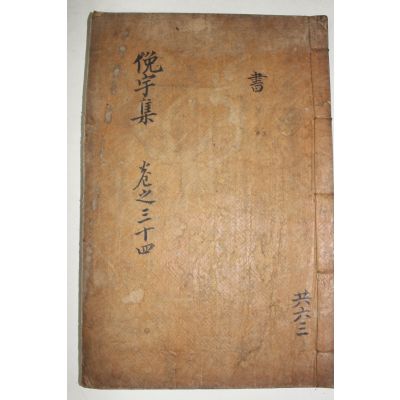 書
俛宇集 卷之三十四
共六三